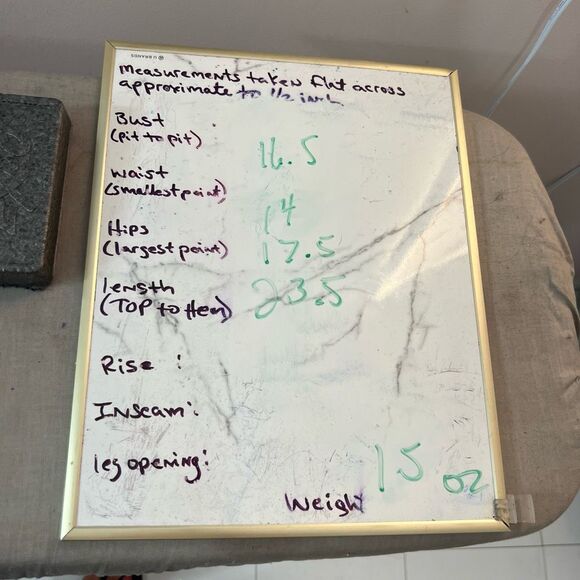 U BRANDS
Measurements taken flat across
approximate to 1/2 inch
Bust
(pit to pit) 16.5
waist
(smallest point) 14
Hips
(largest point) 17.5
length
(TOP to Hem) 23.5
Rise :
Inseam:
leg opening:
15 oz
Weight